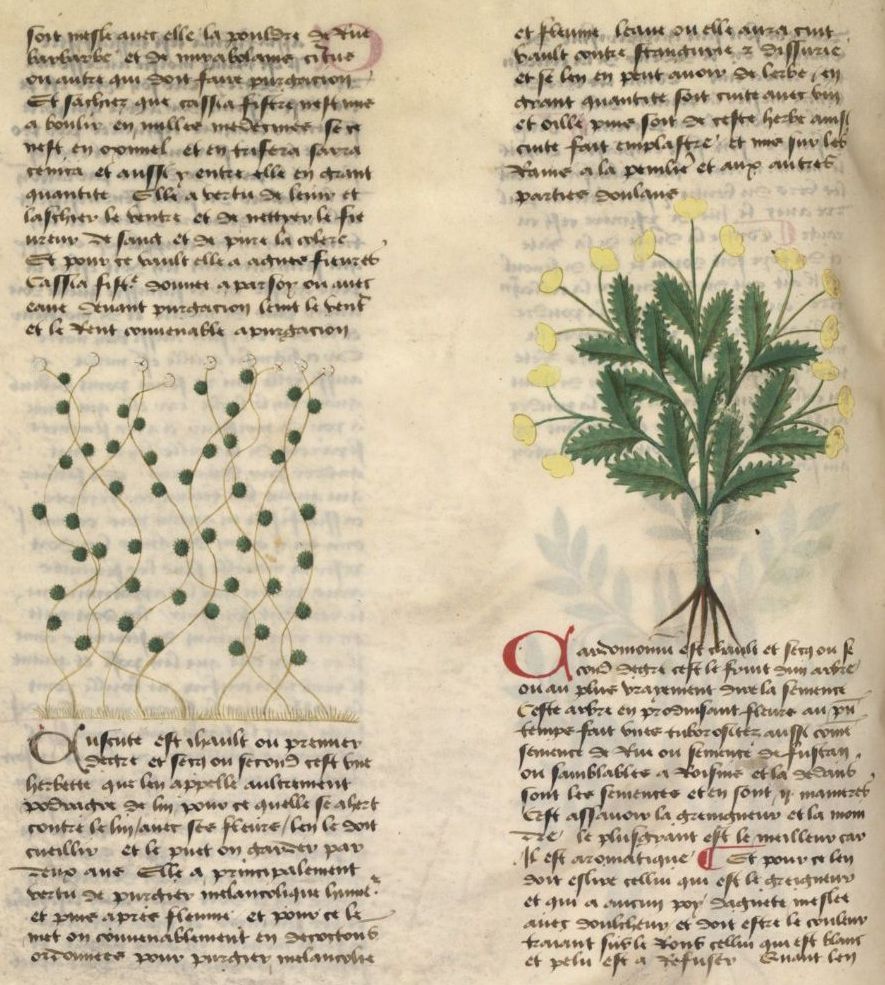 soit mesle avec elle la pouldre de Rue
barbarbe et de mirabolains citrins
ou autre qui doit faire purgacion
Et sachiez que cassia fistre nest mie
a boulir en nulles medecines se ce
nest en oximel et en trifera sarra
cenica et aussi y entre elle en grant
quantite Elle a vertu de lenir et
laschier le ventre et de nettyer le fie
ureur de sang et de pure la colere
Et pour ce vault elle a agues fieures
Cassia fist. donnee a par soy ou avec
eaue devant purgacion lenit le vent
et le Rent convenable a purgacion
Cuscute est chault ou premier
degre et secq ou second cest une
herbette que len appelle aultrement
podragre de lin pour ce quelle se ahert
contre le lin / avec ses fleurs / len le doit
cueillir et le puet on garder par
deux ans Elle a principalement
vertu de purgier melancolique hume.
et puis apres fleume et pour ce le
met on convenablement en decoctions
ordonnees pour purgier melancolie
et fleume leaue ou elle aura cuit
vault contre strangurie et dissurie
et se len en peut avoir de lerbe en
grant quantite soit cuite avec vin
et oille puis soit de ceste herbe ainsi
cuite fait emplastre et mis sur les
Rains a la penilie et aux autres
parties doulans
Cardomomum est chault et secq ou se
cond degre cest le fruit dun arbre
ou au plus vrayement dire la semence
Ceste arbre en produisant fleurs au pn
temps fait unes tuberositez aussi come
semence de Rue ou semence de fustan
ou samblables a Roisins et la dedans
sont les semences et en sont .ij. manieres
Cest assavoir la greingneur et la moin
dre le plus grant est le meilleur car
Il est aromatique Et pour ce len
doit eslire cellui qui est le greigneur
et qui a aucun poy daguete meslee
avec doulcheur et doit estre le couleur
traiant sus le Rous cellui qui est blanc
et pelu est a Refuser Quant len